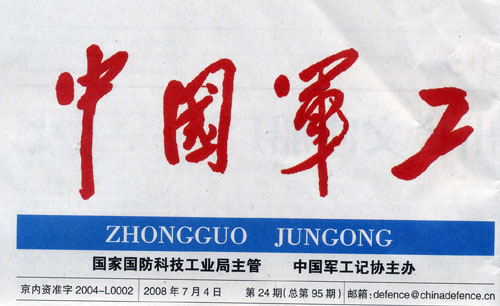 中國軍工
ZHONGGUO JUNGONG
国家国防科技工业局主管 中国军工记协主办
京内资准字 2004-L0002 2008 年 7 月 4 日 第 24 期(总第 95 期) 邮箱:defence@chinadefence.cn